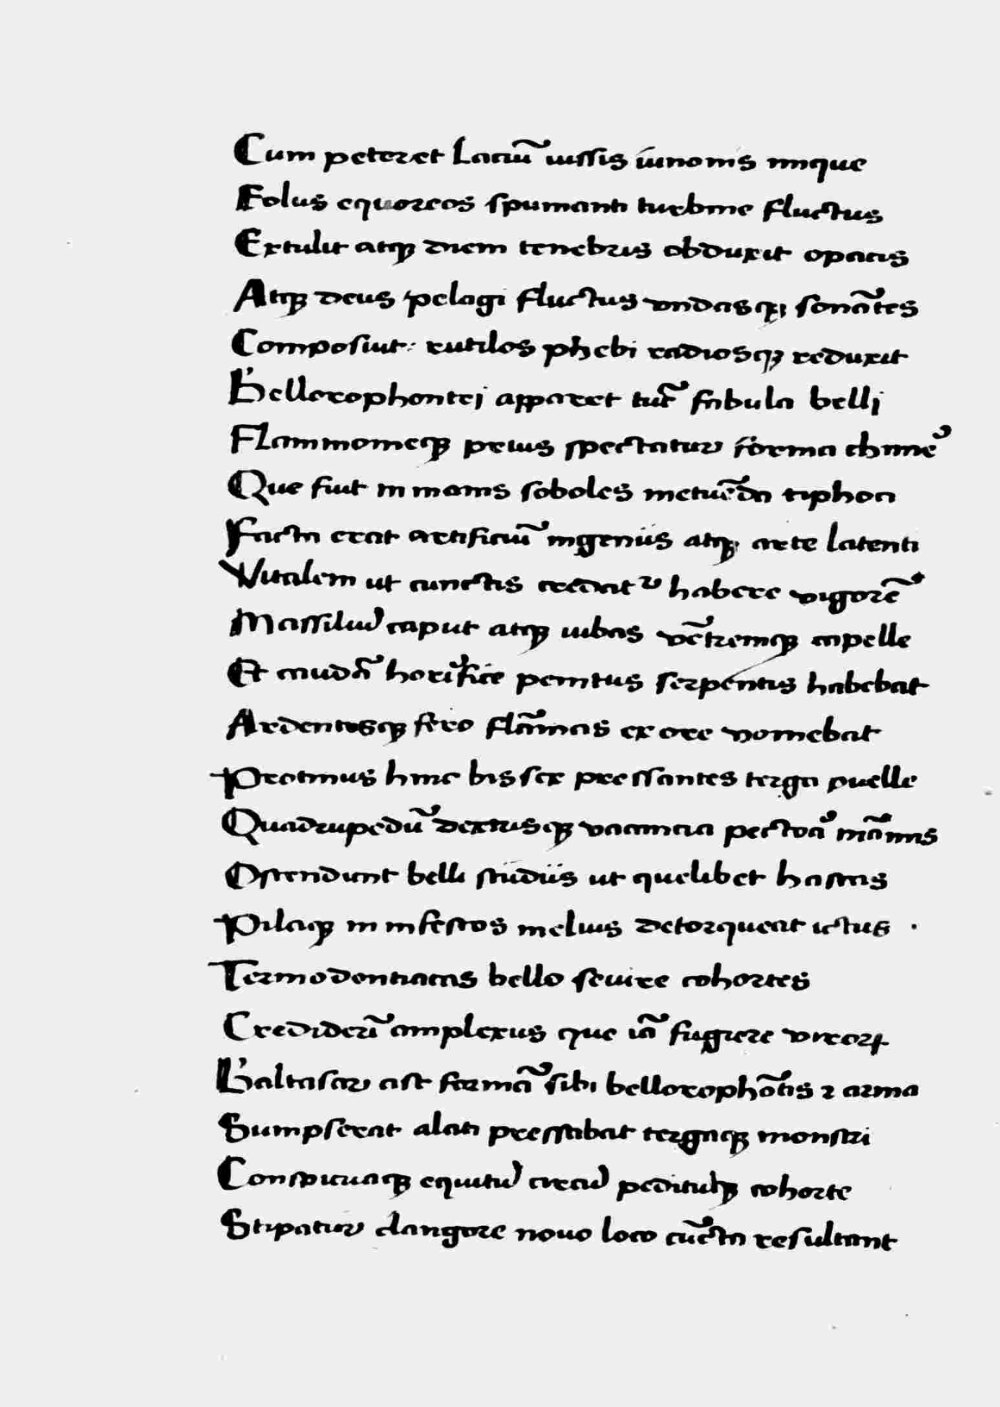 Cum peteret Laciũ iussis iunonis inique
Eolus equoreos spumanti turbine fluctus
Extulit atqȝ diem tenebris obduxit opacis
Atqȝ deus pelagi fluctus vndasqȝ sonãtes
Composuit: rutilos phebi radiosqȝ reduxit
Bellorophontei apparet tũc fabula belli
Flammomeqȝ prius spectatur forma chime᾿
Que fuit inmanis soboles metuẽda tiphon
Facta erat artificiũ ingeniis atqȝ arte latenti
Vitalem ut cunctis credat᾿ habere vigorẽ
Massiliuꝫ caput atqȝ iubas vẽtremqȝ capelle
Et caudã horifice penitus serpentis habebat
Ardentesqȝ fero flãmas ex ore vomebat
Protinus hinc bis sex pressantes terga puelle
Quadrupedũ dextrisqȝ vacancia pectora᾿ mãmis
Ostendunt belli studiis ut quelibet hastas
Pilaqȝ in infestos melius detorqueat ictus .
Termodontiacas bello seuire cohortes
Crediderĩ amplexus que iã fugiere viroꝝ
Baltasar ast formã sibi bellorophõtis ⁊ arma
Sumpserat alati pressabat tergaqȝ monstri
Conspicuaqȝ equituꝫ circuꝫ peditubȝ cohorte
Stipatur clangore nouo loco cũcta resultant